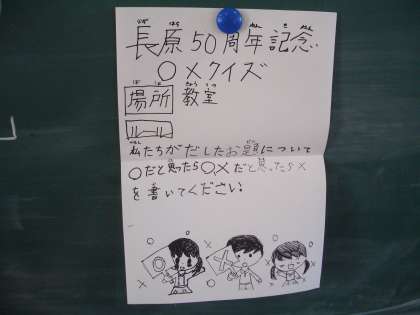 長原50周年記念
○×クイズ
場所 教室
ルール
私たちがだしたお題について
○だと思ったら○,×だと思ったら×
を書いてください